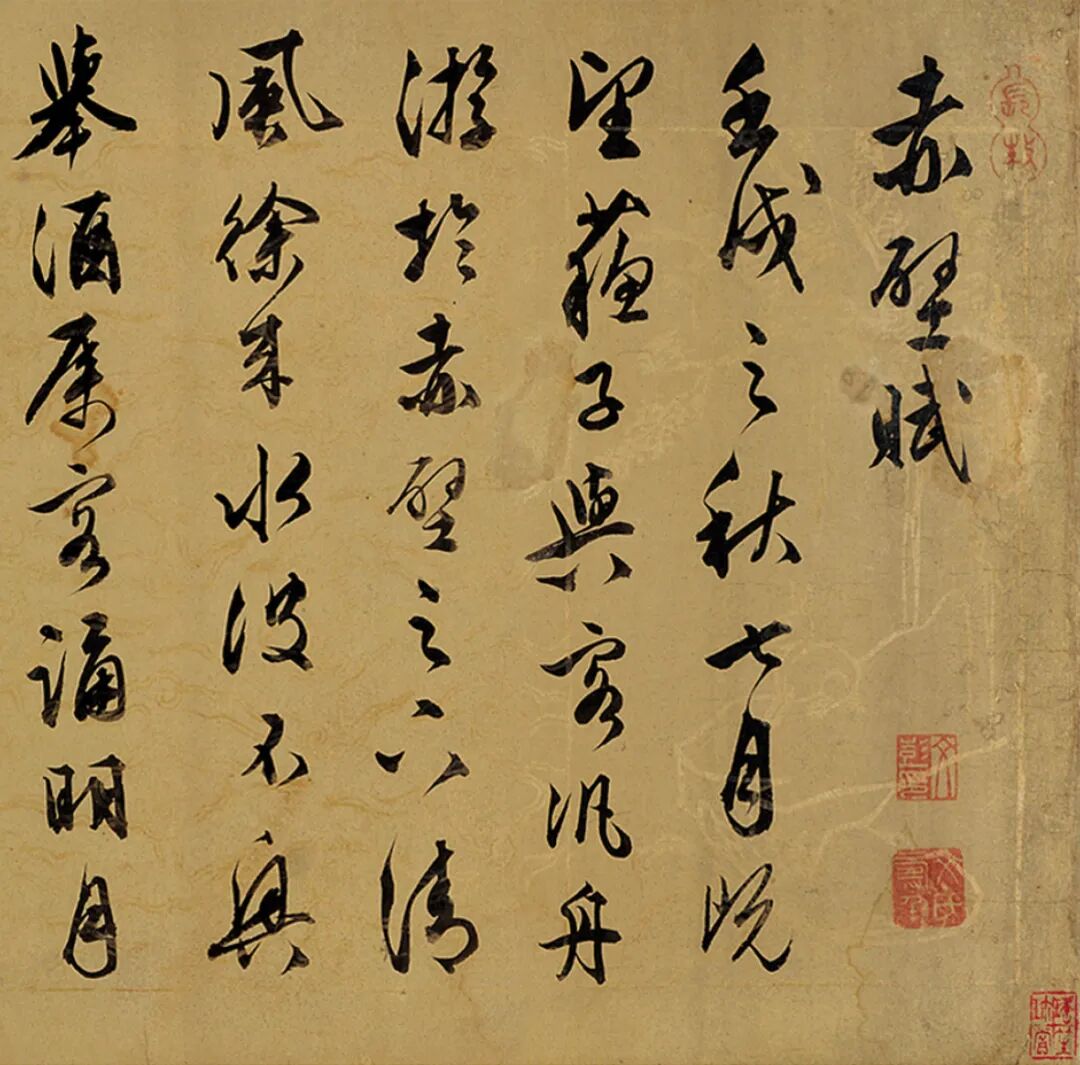 赤壁賦
壬戌之秋七月既
望蘇子與客汎舟
游於赤壁之下清
風徐来水波不興
舉酒属客誦明月